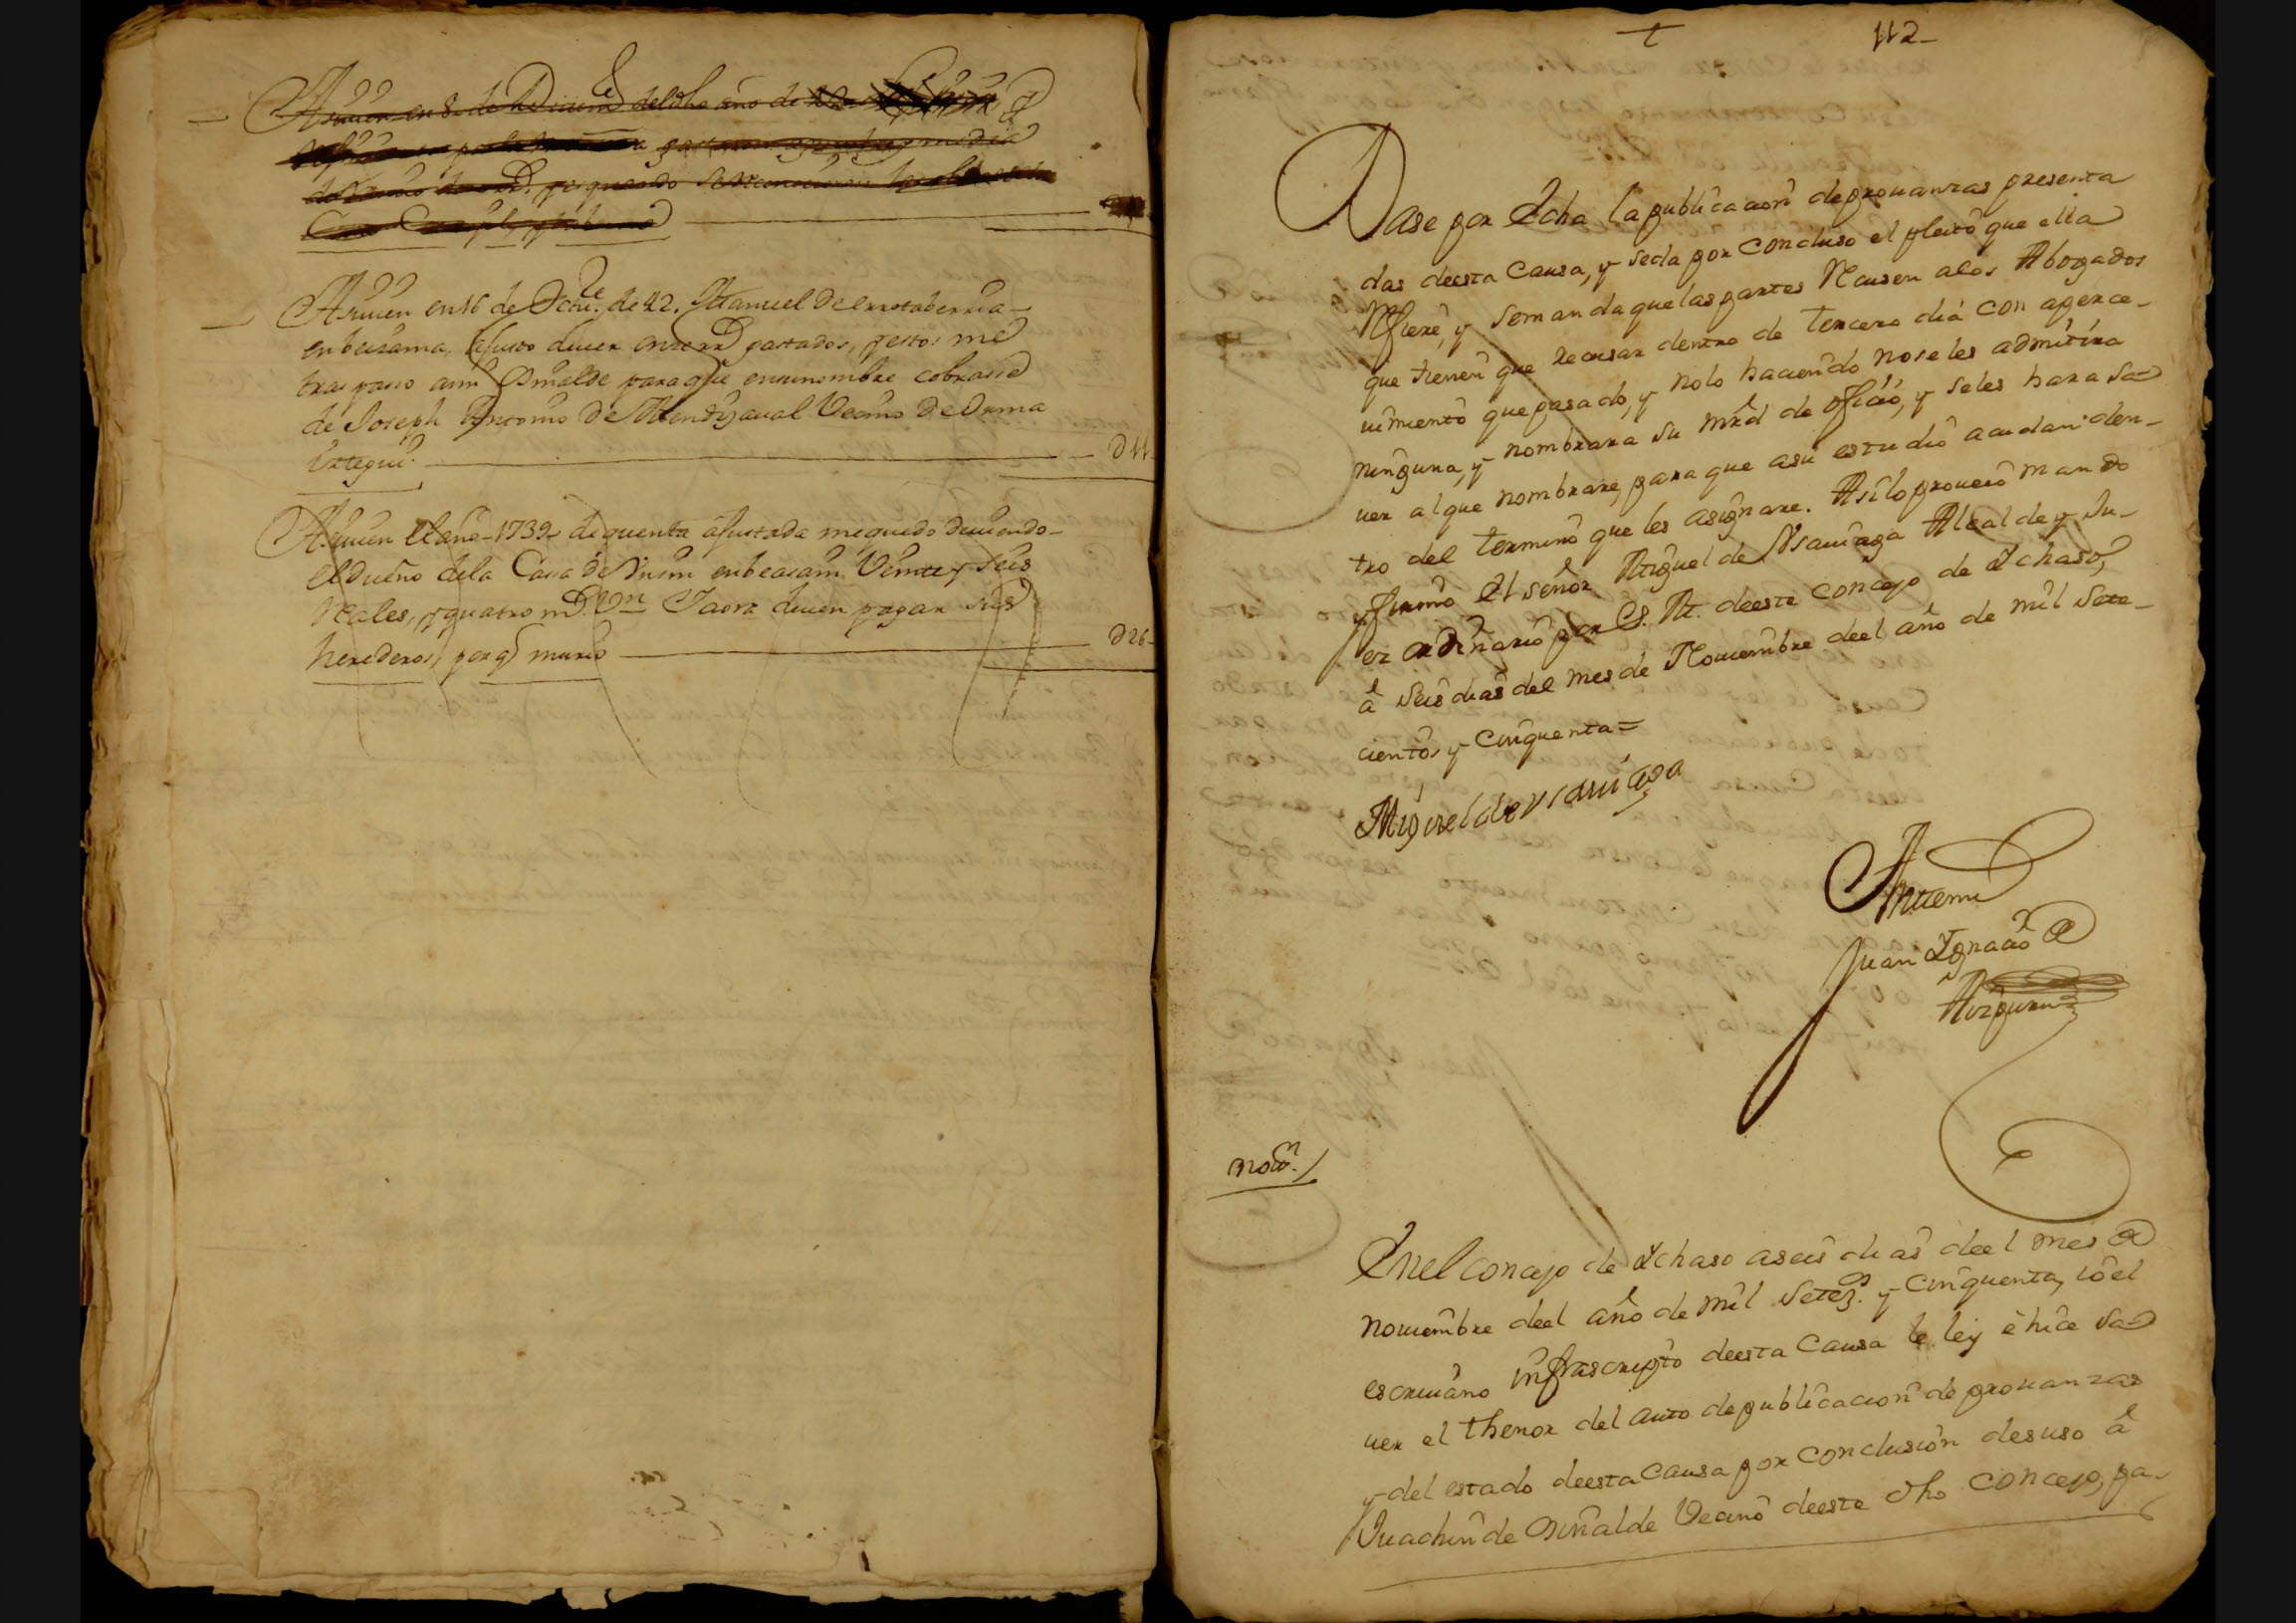 Asiuien en 8 de Diciem.e del dho año de
gastaron y media
de por quando se reconocieron
Asiuien en 16 de Octu.e de 42. Manuel de Errotaberria
en beasama, ajusto diuer onze rr.d gastados, y estos me
traspasso a mi Osinalde para que en su nombre cobrasse
de Joseph Antonio de Mendizaual Vecino de Orma
iztegui. 011-
Asiuien el año - 1739 - de quenta ajustada me quedo diuiendo
el dueño dela Casa de en beasain Veinte y seis
Reales, y quatro m.d V.n Y aora diuen pagar sus
herederos, por q murio 026-
+ 112-
Dase por Echa la publicacion de prouanzas presenta
das deesta Causa, y seda por concluso el pleito que ella
Refiere, y semanda quelas partes Recusen alos Abogados
que tienen que recusar dentro de tercero dia con aperce-
uimiento que pasado, y nolo haciendo nose les admitira
ninguna, y nombrara su mrd de oficio, y seles hara sa
uer al que nombrare, para que asu estudio acudan den-
tro del termino que les asignare. Asilo proueio mando
y firmo El señor Miguel de Vsauiaga Alcalde y Ju-
ez ordinario por S. M. deeste concejo de Ychaso,
â seis dias del mes de Nouiembre deel año de mil Sete-
cientos y Cinquenta =
Miguel de vsauiaga
Antemi
Juan Ygnacio de
Aizpuru
noto.n /
Enel concejo de Ychaso a seis dias deel mes de
nouiembre deel año de mil Setez.os y Cinquenta, ío el
escriuano infrascripto deesta Causa le ley è hice sa
uer el thenor del auto de publicacion de prouanzas
y del estado deesta Causa por conclusion desuso â
Juachin de Osinalde Vecino deeste dho concejo, pa-